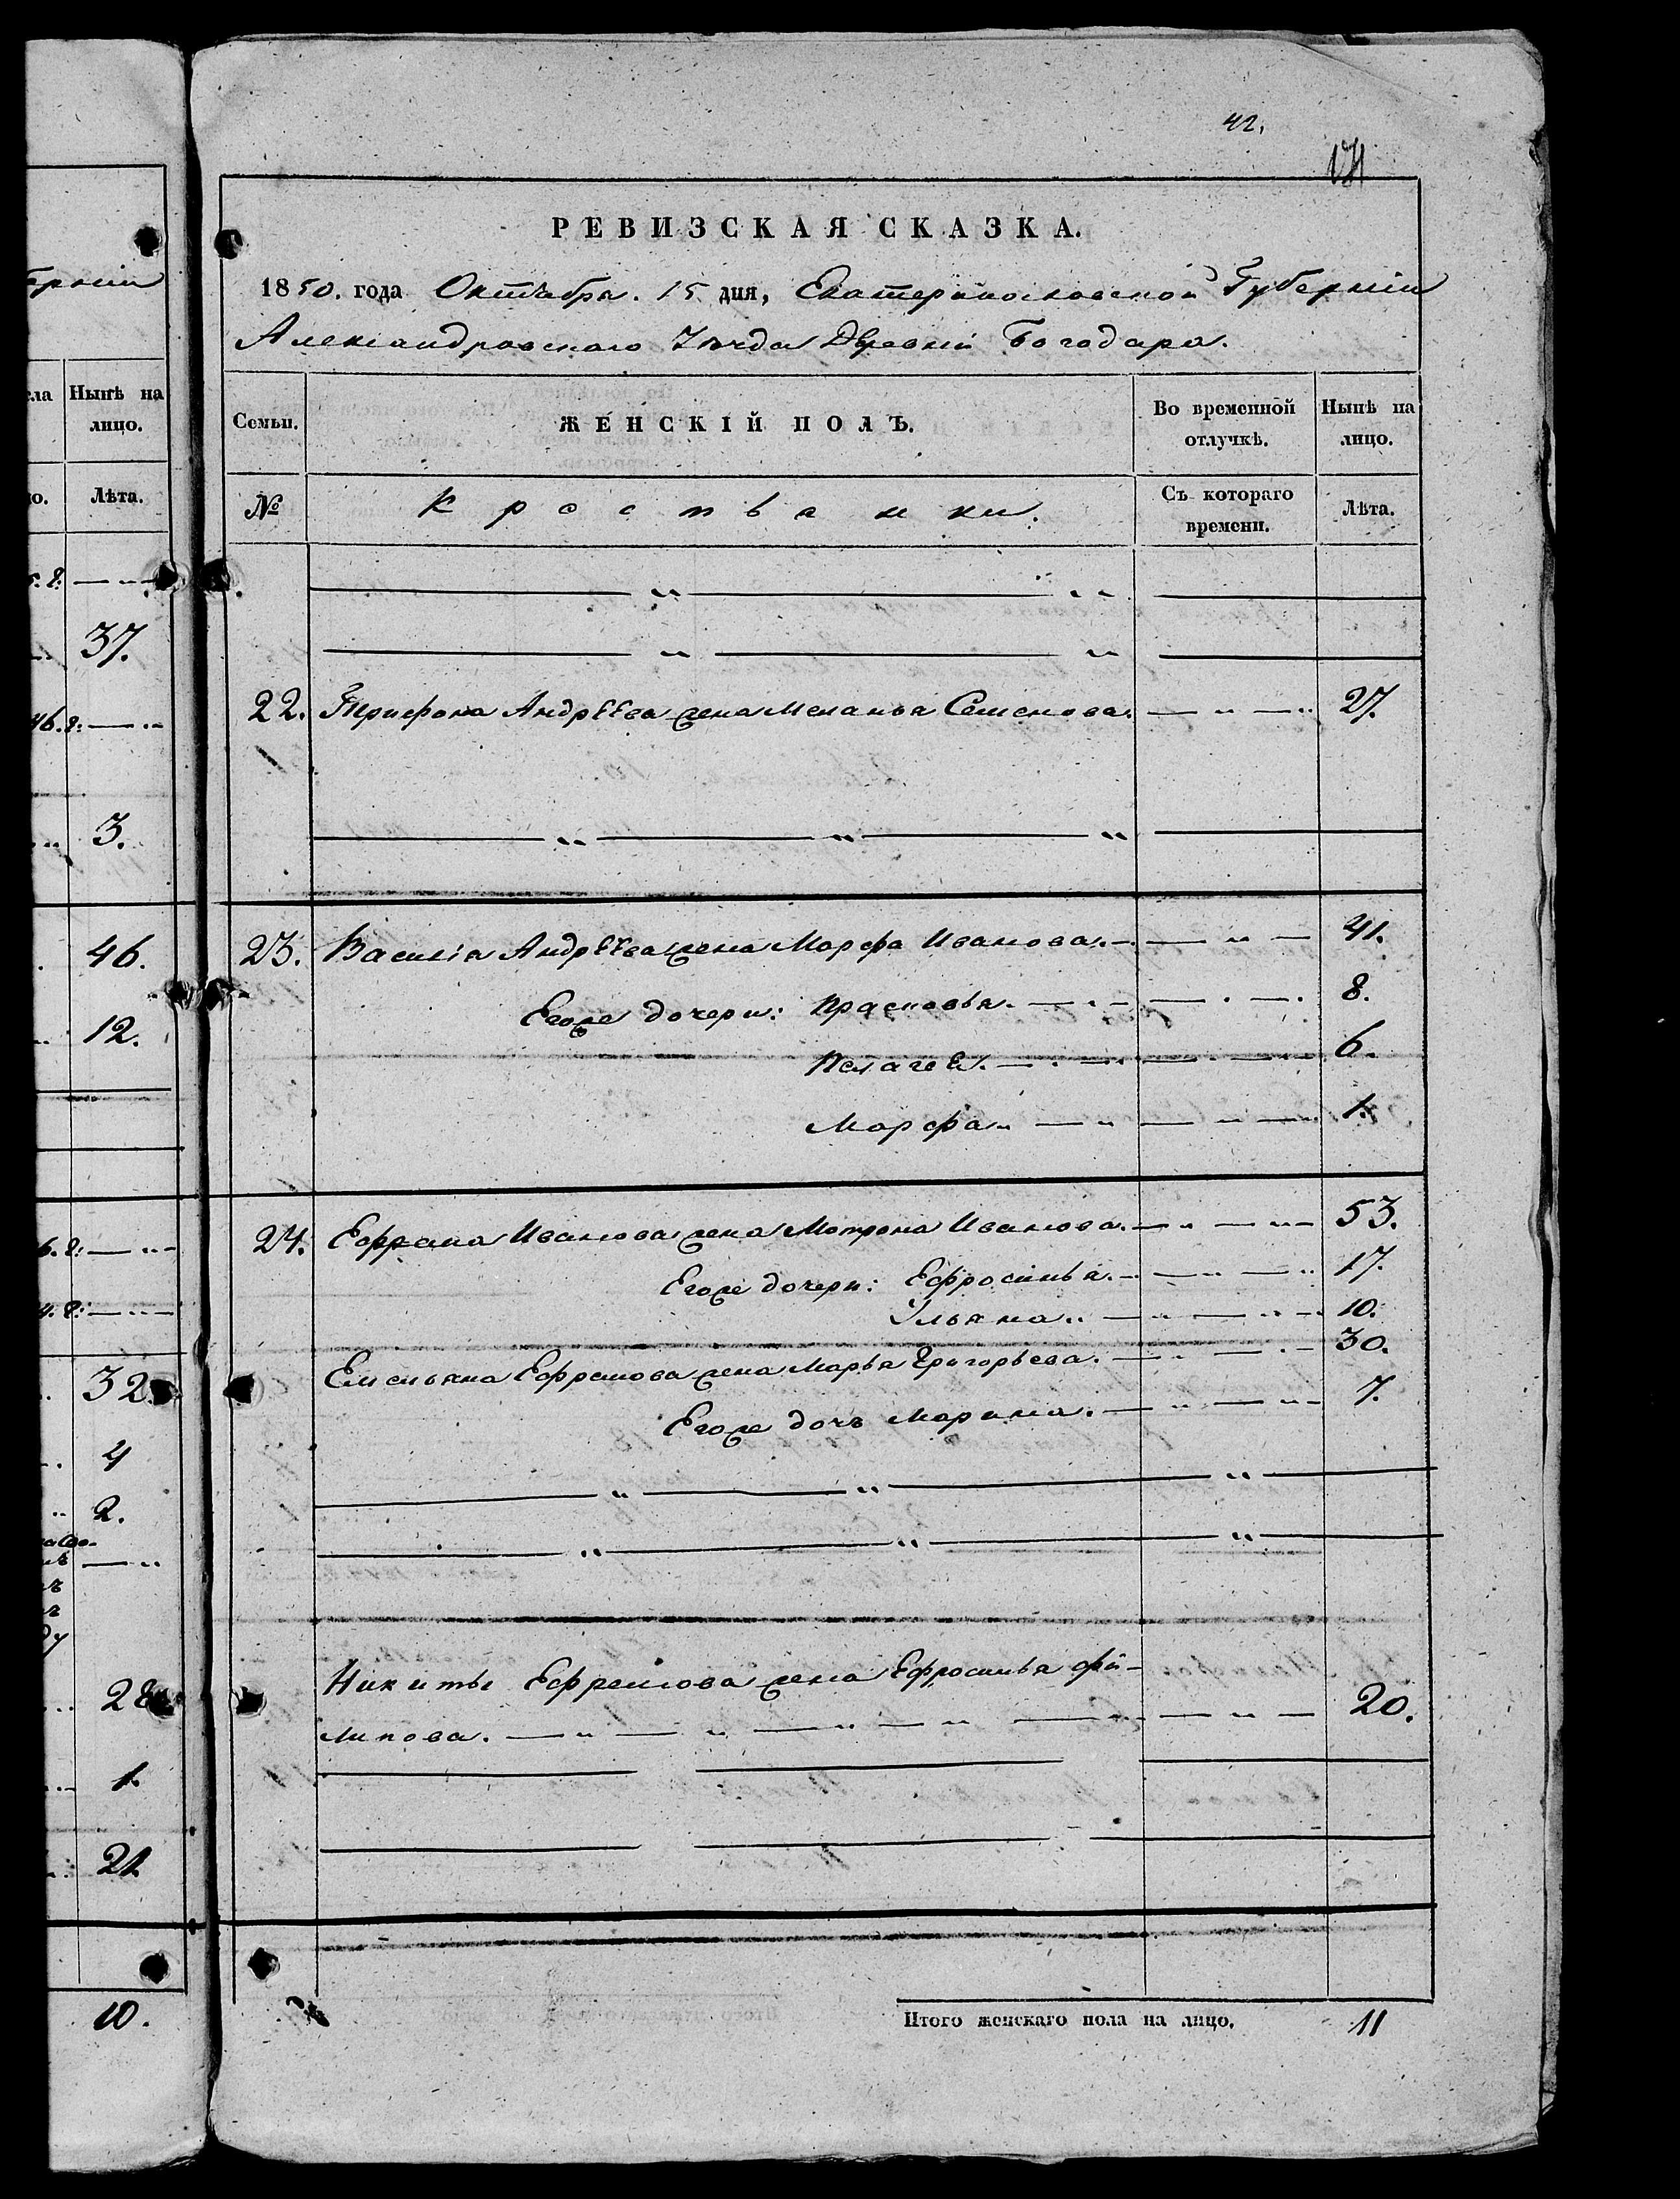 42.
РЕВИЗСКАЯ СКАЗКА.
1850. года Октября. 15 дня, Екатеринославской Губерніи
Александровскаго Уѣзда Деревни Богодара.
Семьи. ЖЕНСКІЙ ПОЛЪ. Во временной отлучкѣ. Нынѣ на лицо.
№ Крестьянки. Съ котораго времени. Лѣта.
22. Трифона Андрѣева жена Меланья Семенова. 27.
23. Василія Андрѣева жена Марфа Иванова. 41.
Егоже дочери: Прасковья. 8.
Пелагея. 6.
Марфа 1.
24. Ефрема Иванова жена Мотрона Иванова. 53.
Егоже дочери: Ефросинья. 17.
Ульяна 10.
Емельяна Ефремова жена Марья Григорьева. 30.
Егоже дочь Марина. 7.
Никиты Ефремова жена Ефросинья Фи-
липова. 20.
Итого женскаго пола на лицо. 11
Нынѣ на
лицо.
Лѣта.
37.
3.
46.
12.
32
4
2.
28
1.
21
10.